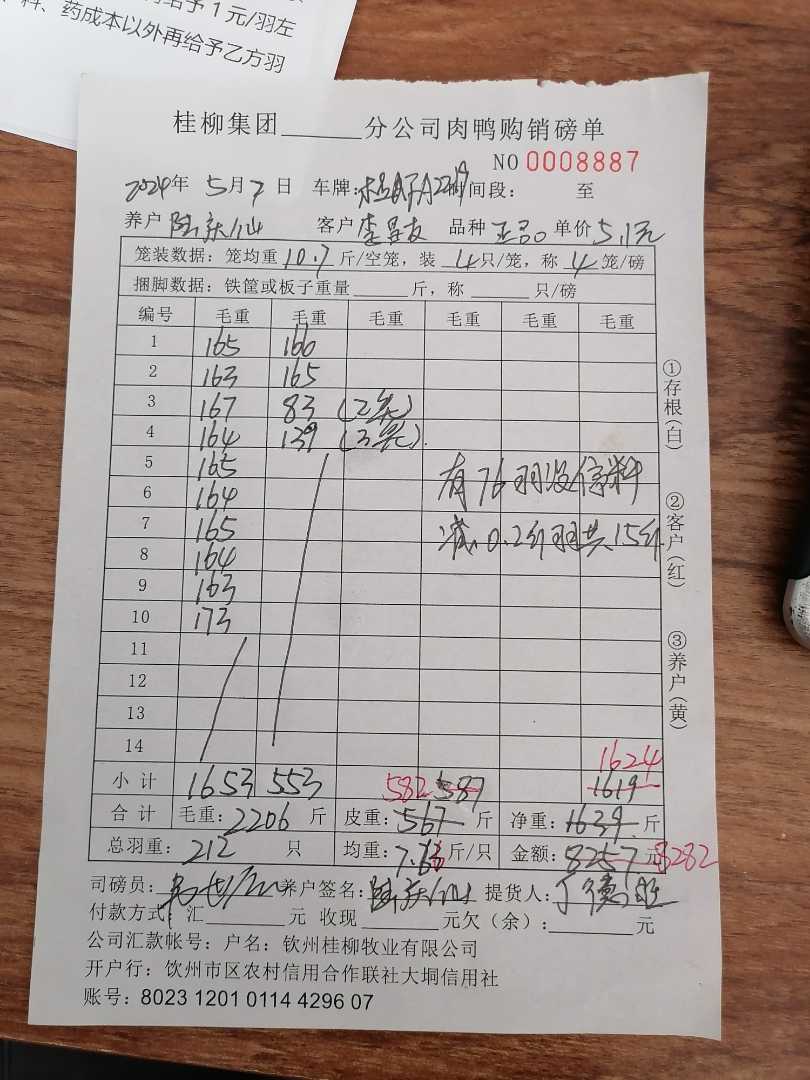 给予1元/羽左
料、药成本以外再给予乙方羽
桂柳集团______分公司肉鸭购销磅单
NO 0008887
2024年 5月7日 车牌: 时间段: 至
养户 陆庆仙 客户 李昌友 品种 单价 5.1元
笼装数据: 笼均重 10.7 斤/空笼，装 4只/笼，称 4 笼/磅
捆脚数据: 铁筐或板子重量______斤，称______只/磅
编号 毛重 毛重 毛重 毛重 毛重 毛重
1 165 166
2 163 165
3 167 83 (2笼)
4 164 139 (3笼)
5 165
6 164 有76羽没停料
7 165 减0.2斤/羽共15斤
8 164
9 163
10 173
11
12
13
14 1624
小计 1653 553 582 587 1619
合计 毛重: 2206 斤 皮重: 567 斤 净重: 1639 斤
总羽重: 212 只 均重: 7.66 斤/只 金额: 8257 元 8282
司磅员: 养户签名: 陆庆仙 提货人:
付款方式: 汇______元 收现______元欠（余）:______元
公司汇款帐号: 户名: 钦州桂柳牧业有限公司
开户行: 钦州市区农村信用合作联社大垌信用社
账号: 8023 1201 0114 4296 07
①存根(白)
②客户(红)
③养户(黄)